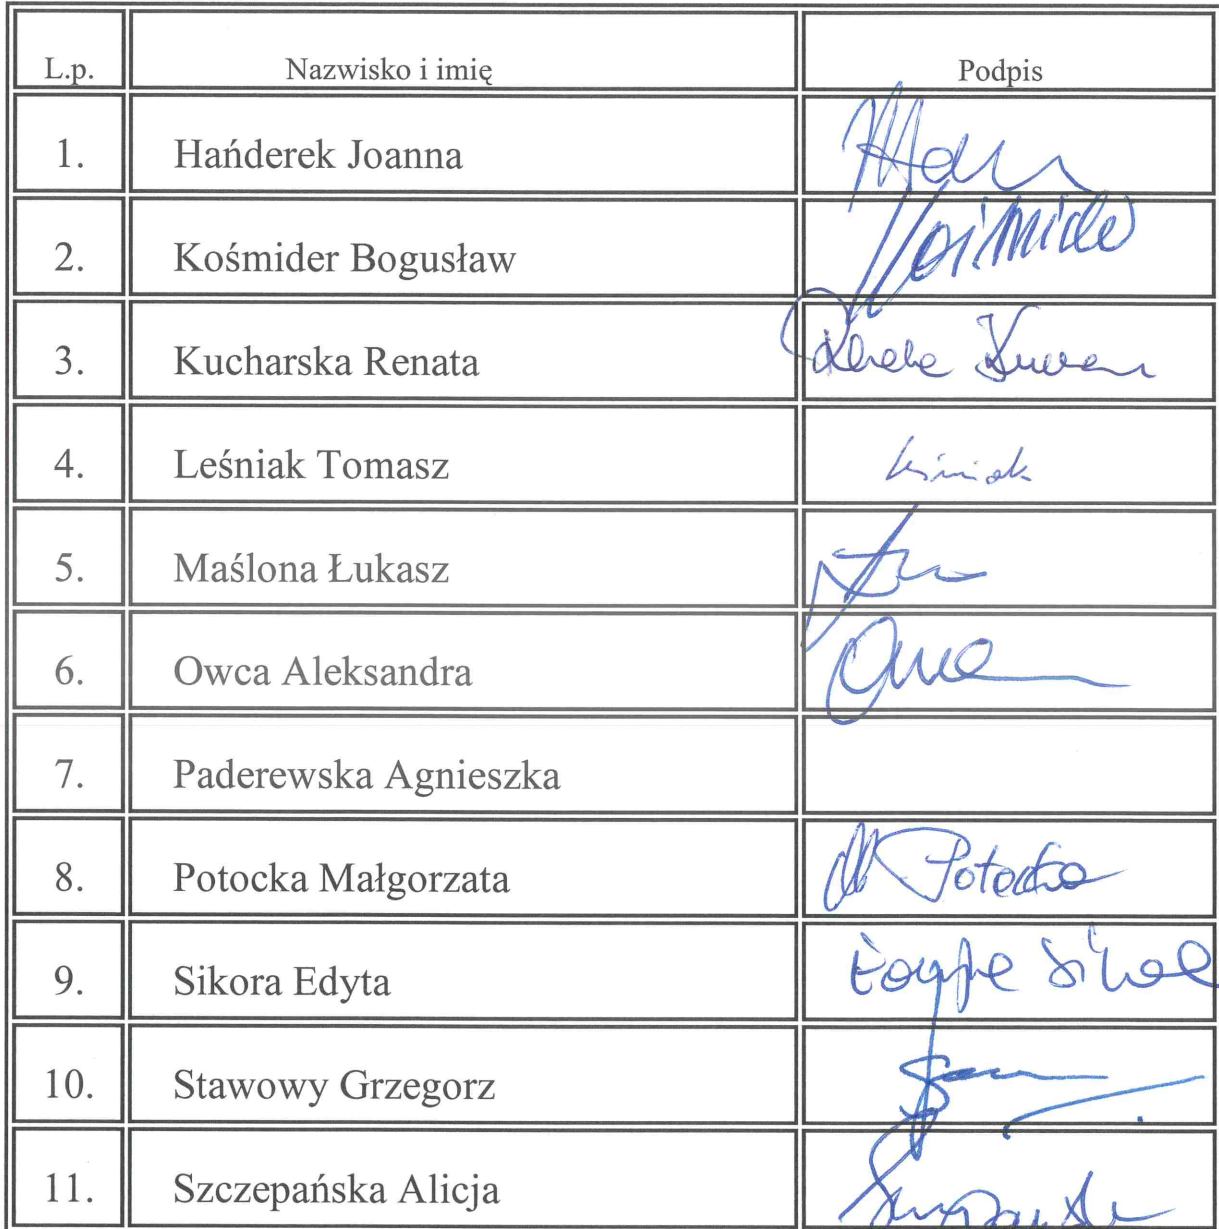 L.p. Nazwisko i imię Podpis
1. Hańderek Joanna
2. Kośmider Bogusław Kośmider
3. Kucharska Renata
4. Leśniak Tomasz Leśniak
5. Maślona Łukasz
6. Owca Aleksandra
7. Paderewska Agnieszka
8. Potocka Małgorzata M Potocka
9. Sikora Edyta Edyta Sikora
10. Stawowy Grzegorz
11. Szczepańska Alicja